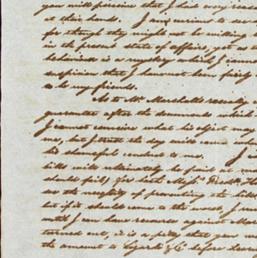 you will perceive that I have every
at their hands. I am anxious to
for though they might not be willing to
in the present state of affairs, yet as
behaviour is a mystery which I cannot
suspicion that I have not been fairly
to be my friends.
As to Mr. Marshall's
guarantee after the documents which
I cannot conceive what his object may
me, but I trust the day will come when
his shameful conduct to me. I
bills will ultimately be paid at
should fail) for both Messrs.
us the necessity of presenting the bills
but if it should come to the worst, I
until I can have recourse against
turned out, it is a pity that you
the amount to &Co before